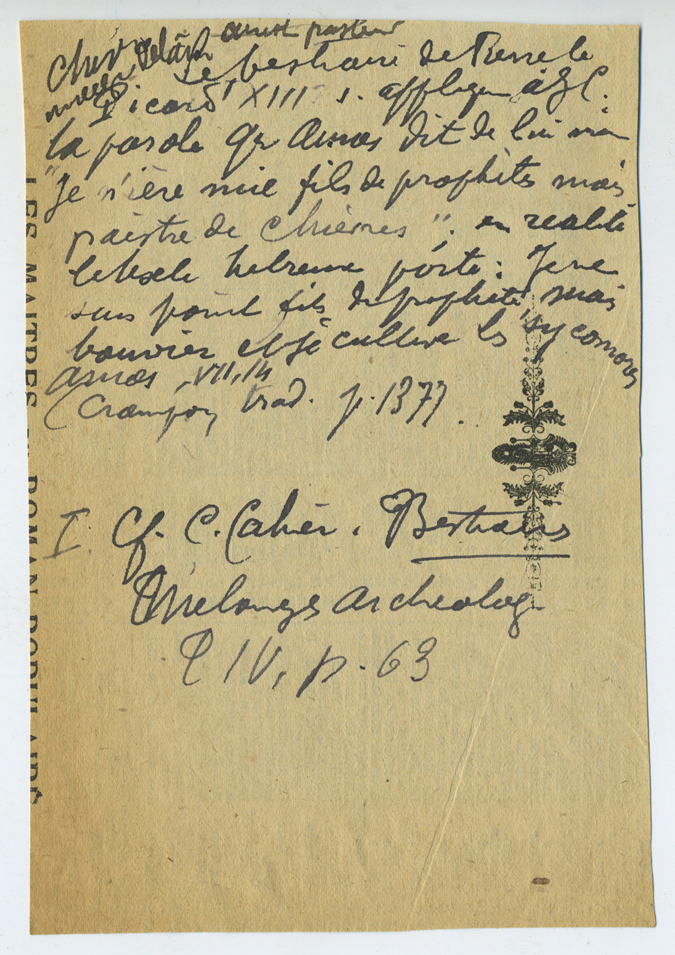 Chèv
Christ pasteur
Le bestiaire de Pierre le
Picard XIII s. applique à J C.
la parole qe Amos dit de lui mm
"Je n'ière mie fils de prophètes mais
paistre de chièvres". en realité
le texte hebreux porte : Je ne
suis point fils de prophète, mais
bouvier et je cultive les sycomores
Amos, VII, 14
(Crampon, trad. p. 1377.
I. Cf. C. Cahier. Bestiaires
Mélanges archeolog
T IV, p. 63
LES MAITRES DU ROMAN POPULAIRE